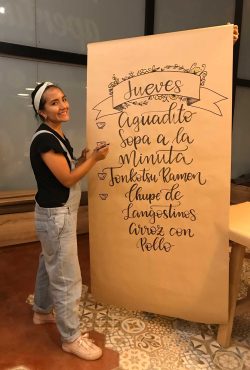 Jueves
Aguadito
Sopa a la
minuta
Tonkotsu Ramen
Chupe de
Langostinos
Arroz con
Pollo